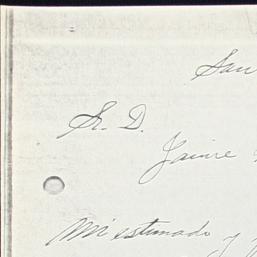 San
Sr. D.
Jaime
Mi estimado